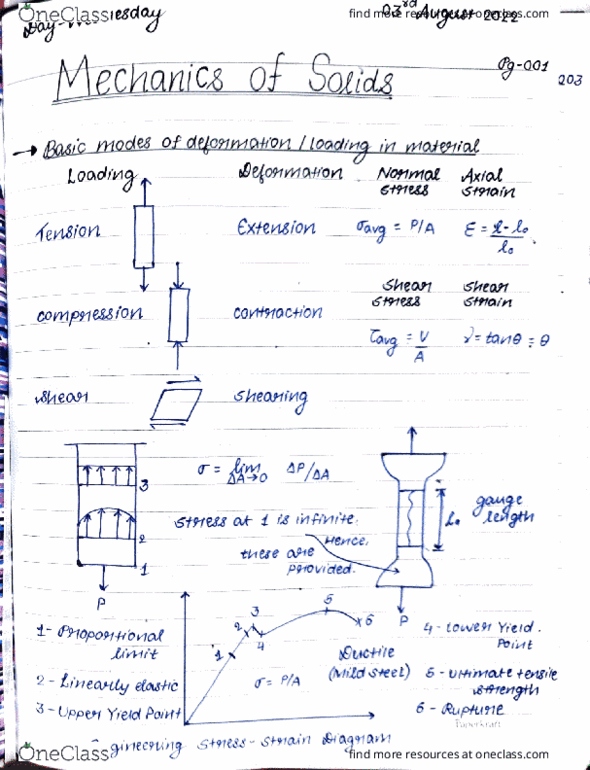 OneClass
find more resources at oneclass.com
03rd August 2022
Pg-001
203
Mechanics of Solids
→ Basic modes of deformation / loading in material
Loading Deformation Normal stress Axial strain
Tension Extension σavg = P/A ε = l - l₀ / l₀
Shear stress Shear strain
compression contraction τavg = V/A γ = tanθ = θ
shear shearing
σ = lim ΔA→0 ΔP/ΔA
3
2
1
P
stress at 1 is infinite.
Hence,
these are
provided.
L₀
gauge length
P
1 - Proportional limit
2 - Linearly elastic
3 - Upper Yield Point
1
2
3
4
5
6
σ = P/A
Ductile
(Mild steel)
4 - Lower Yield Point
5 - Ultimate tensile strength
6 - Rupture
Paperkraft
Engineering Stress - Strain Diagram
OneClass
find more resources at oneclass.com